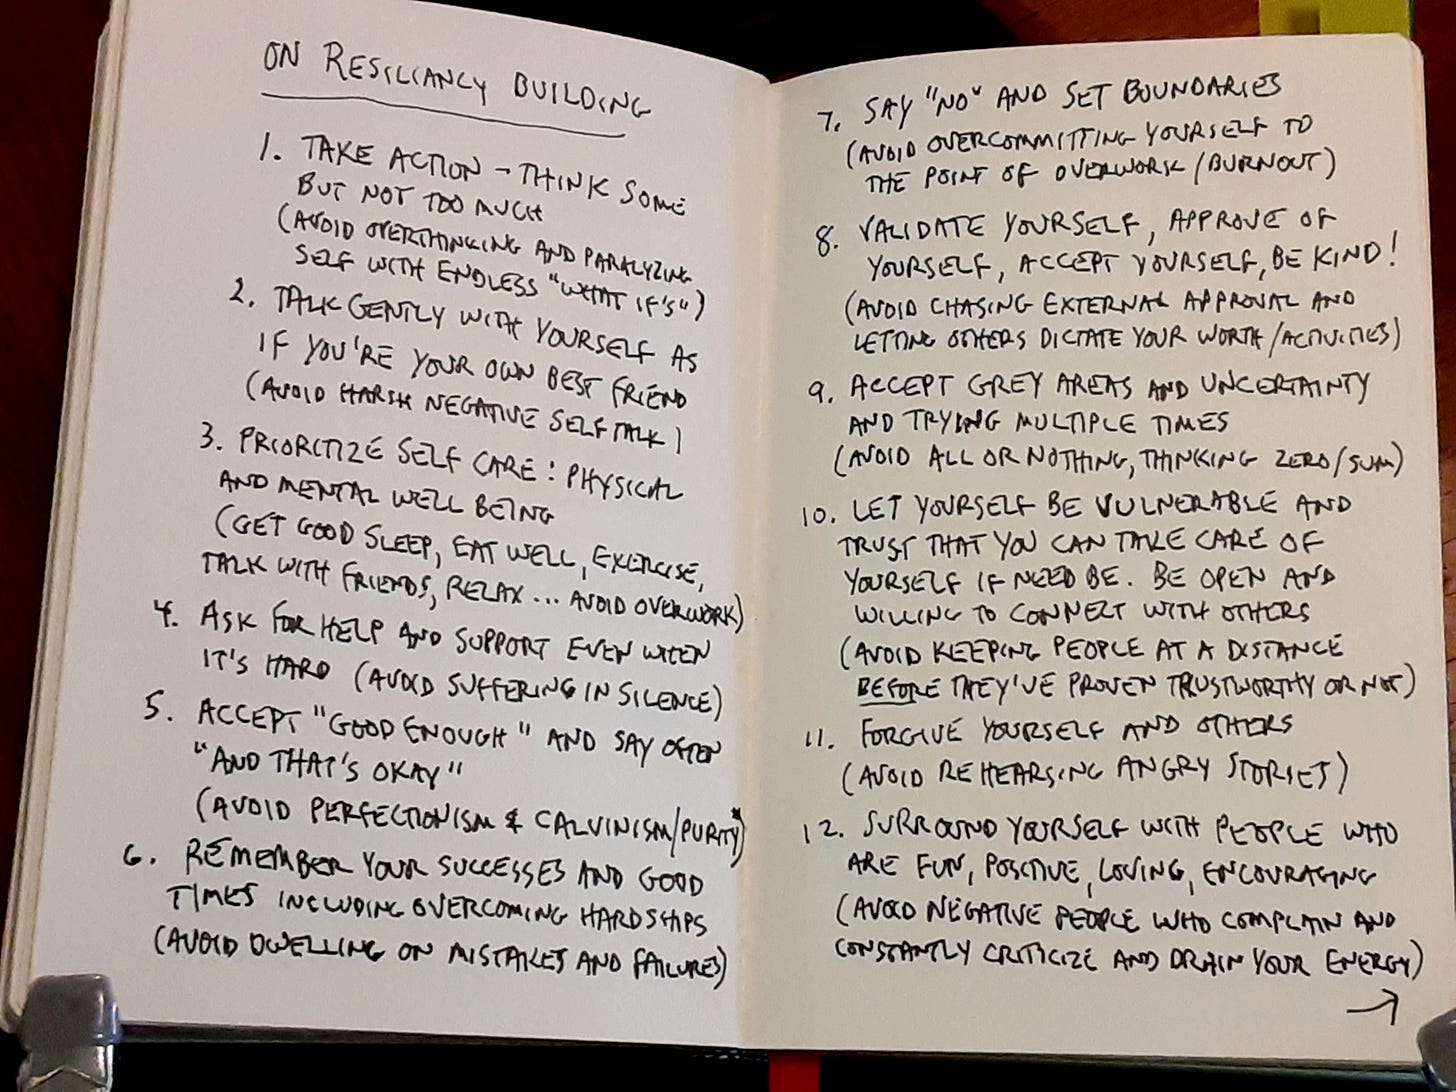 ON RESILIANCY BUILDING
1. TAKE ACTION - THINK SOME
BUT NOT TOO MUCH
(AVOID OVERTHINKING AND PARALYZING
SELF WITH ENDLESS "WHAT IF'S")
2. TALK GENTLY WITH YOURSELF AS
IF YOU'RE YOUR OWN BEST FRIEND
(AVOID HARSH NEGATIVE SELF TALK)
3. PRIORITIZE SELF CARE: PHYSICAL
AND MENTAL WELL BEING
(GET GOOD SLEEP, EAT WELL, EXERCISE,
TALK WITH FRIENDS, RELAX... AVOID OVERWORK)
4. ASK FOR HELP AND SUPPORT EVEN WHEN
IT'S HARD (AVOID SUFFERING IN SILENCE)
5. ACCEPT "GOOD ENOUGH" AND SAY OFTEN
"AND THAT'S OKAY"
(AVOID PERFECTIONISM & CALVINISM/PURITY*)
6. REMEMBER YOUR SUCCESSES AND GOOD
TIMES INCLUDING OVERCOMING HARDSHIPS
(AVOID DWELLING ON MISTAKES AND FAILURES)
7. SAY "NO" AND SET BOUNDARIES
(AVOID OVERCOMMITTING YOURSELF TO
THE POINT OF OVERWORK/BURNOUT)
8. VALIDATE YOURSELF, APPROVE OF
YOURSELF, ACCEPT YOURSELF, BE KIND!
(AVOID CHASING EXTERNAL APPROVAL AND
LETTING OTHERS DICTATE YOUR WORTH/ACTIVITIES)
9. ACCEPT GREY AREAS AND UNCERTAINTY
AND TRYING MULTIPLE TIMES
(AVOID ALL OR NOTHING, THINKING ZERO/SUM)
10. LET YOURSELF BE VULNERABLE AND
TRUST THAT YOU CAN TAKE CARE OF
YOURSELF IF NEED BE. BE OPEN AND
WILLING TO CONNECT WITH OTHERS
(AVOID KEEPING PEOPLE AT A DISTANCE
BEFORE THEY'VE PROVEN TRUSTWORTHY OR NOT)
11. FORGIVE YOURSELF AND OTHERS
(AVOID REHEARSING ANGRY STORIES)
12. SURROUND YOURSELF WITH PEOPLE WHO
ARE FUN, POSITIVE, LOVING, ENCOURAGING
(AVOID NEGATIVE PEOPLE WHO COMPLAIN AND
CONSTANTLY CRITICIZE AND DRAIN YOUR ENERGY)
→